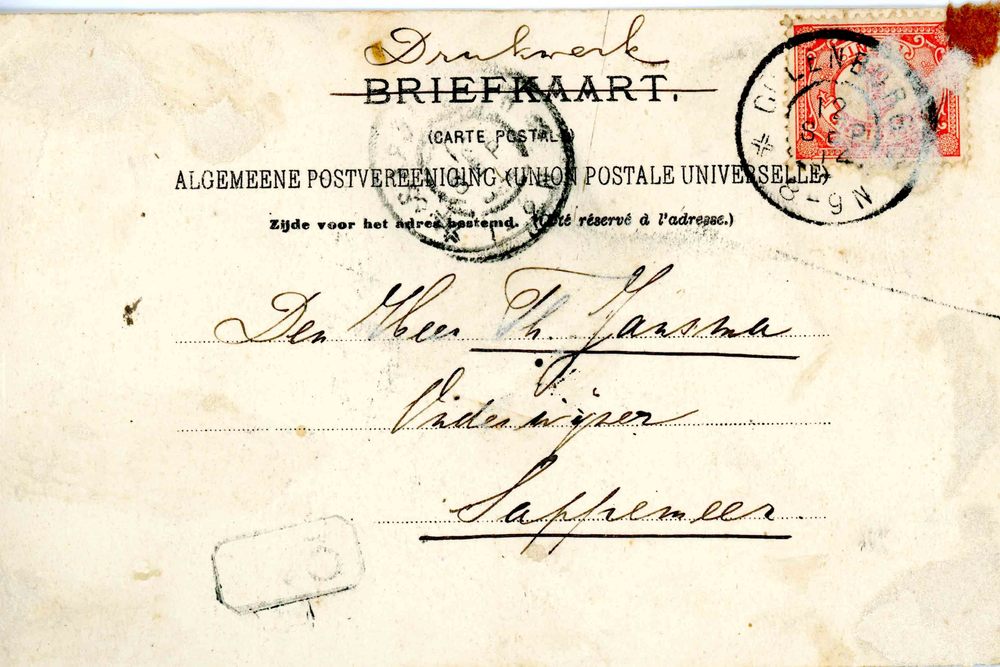 Drukwerk
BRIEFKAART.
(CARTE POSTALE)
ALGEMEENE POSTVEREENIGING (UNION POSTALE UNIVERSELLE)
Zijde voor het adres bestemd. (Côté réservé à l'adresse.)
CULENBORG
12
SEP
8-9N
Den Heer Th. Jansma
Onderwijzer
Sappemeer.